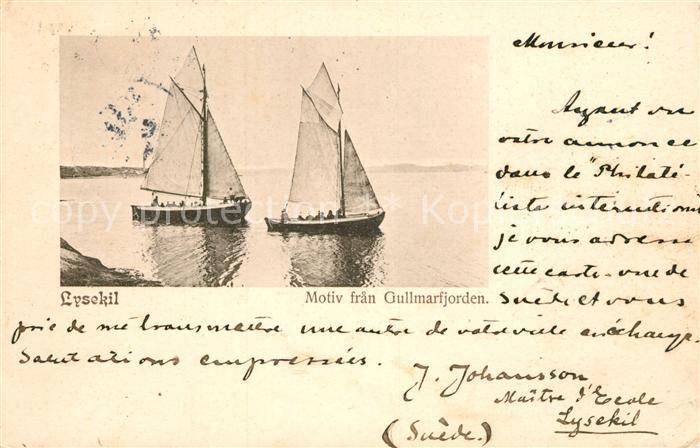 Monsieur!
Ayant vu
votre annonce
dans le "Philaté-
liste international
je vous adresse
cette carte-vue de
Suède et vous
Lysekil
Motiv från Gullmarfjorden.
prie de me transmettre une autre de votre ville en échange.
Salutations empressées.
J. Johansson
Maître d'Ecole
Lysekil
(Suède.)